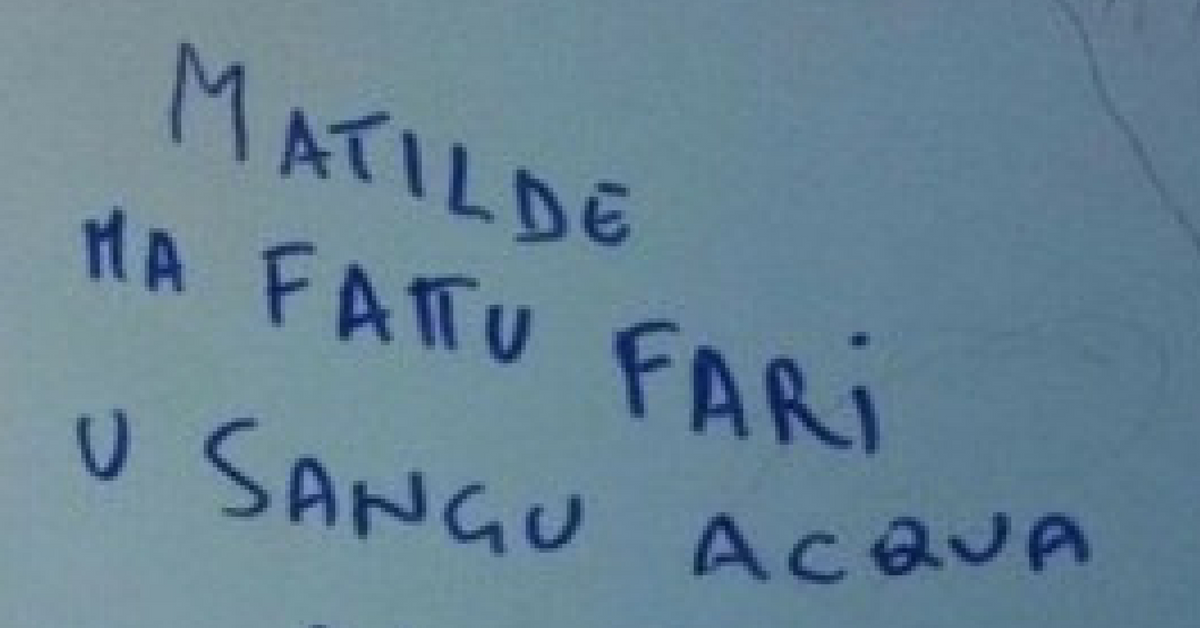 MATILDE
MA FATTU FARi
U SANGU ACQUA